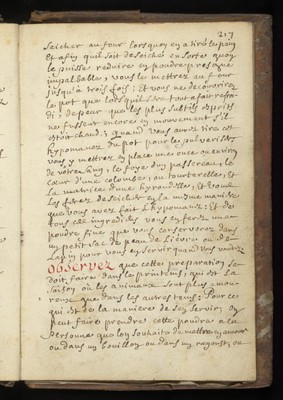 217
seicher au four lorsqu'on en a tiré le pain
et afin qu'il soit deseiché en sorte qu'on
le puisse reduire en poudre presque
impalbable, vous le mettrez au four
jusqu'à trois fois; et vous ne decouvrirez
le pot que lorsqu'il sera tout a fait refroi-
di, de peur que les plus subtils esprits
ne fussent encore en mouvement s'il
estoit chaud; quand vous aurez tiré cet
hypomanez du pot pour le pulveriser
vous y mettrez en place une once ou environ
de votre sang, le foye d'un passereau, le
cœur d'une colombe, ou tourterelle, et
la matrice d'une hyrondelle, et vous
les ferez deseicher en la même maniere
que vous avez fait l'hypomanez: Et de
tous ces ingrediens vous en ferez une
poudre fine que vous conserverez dans
un petit sac de peau de Liévre ou de
Lapin pour vous en servir quand vous voudrez
Observez que cette preparation se
doit faire dans le printems, qui est la
saison où les animaux sont plus amou-
reux que dans les autres tems: Pour ce
qui est de la maniere de s'en servir, on
peut faire prendre cette poudre a la
Personne que l'on souhaite de mettre en amour
ou dans un bouillon ou dans un ragoust, ou